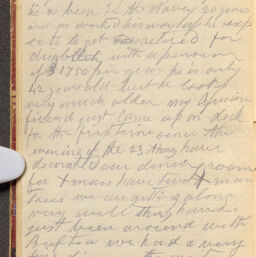 he's been in the Navy 20 years
and has worked his way up he exp
ects to get retired for
disability with a pension
of $1750 per year he is only
42 years old but he looks
very much older my
friend just came up on deck
for the first time since the
evening of the 23 they have
decorated our dining room
for Xmas have two Xmas
trees we are getting along
very well they have
just been around with
Beef tea we had a very